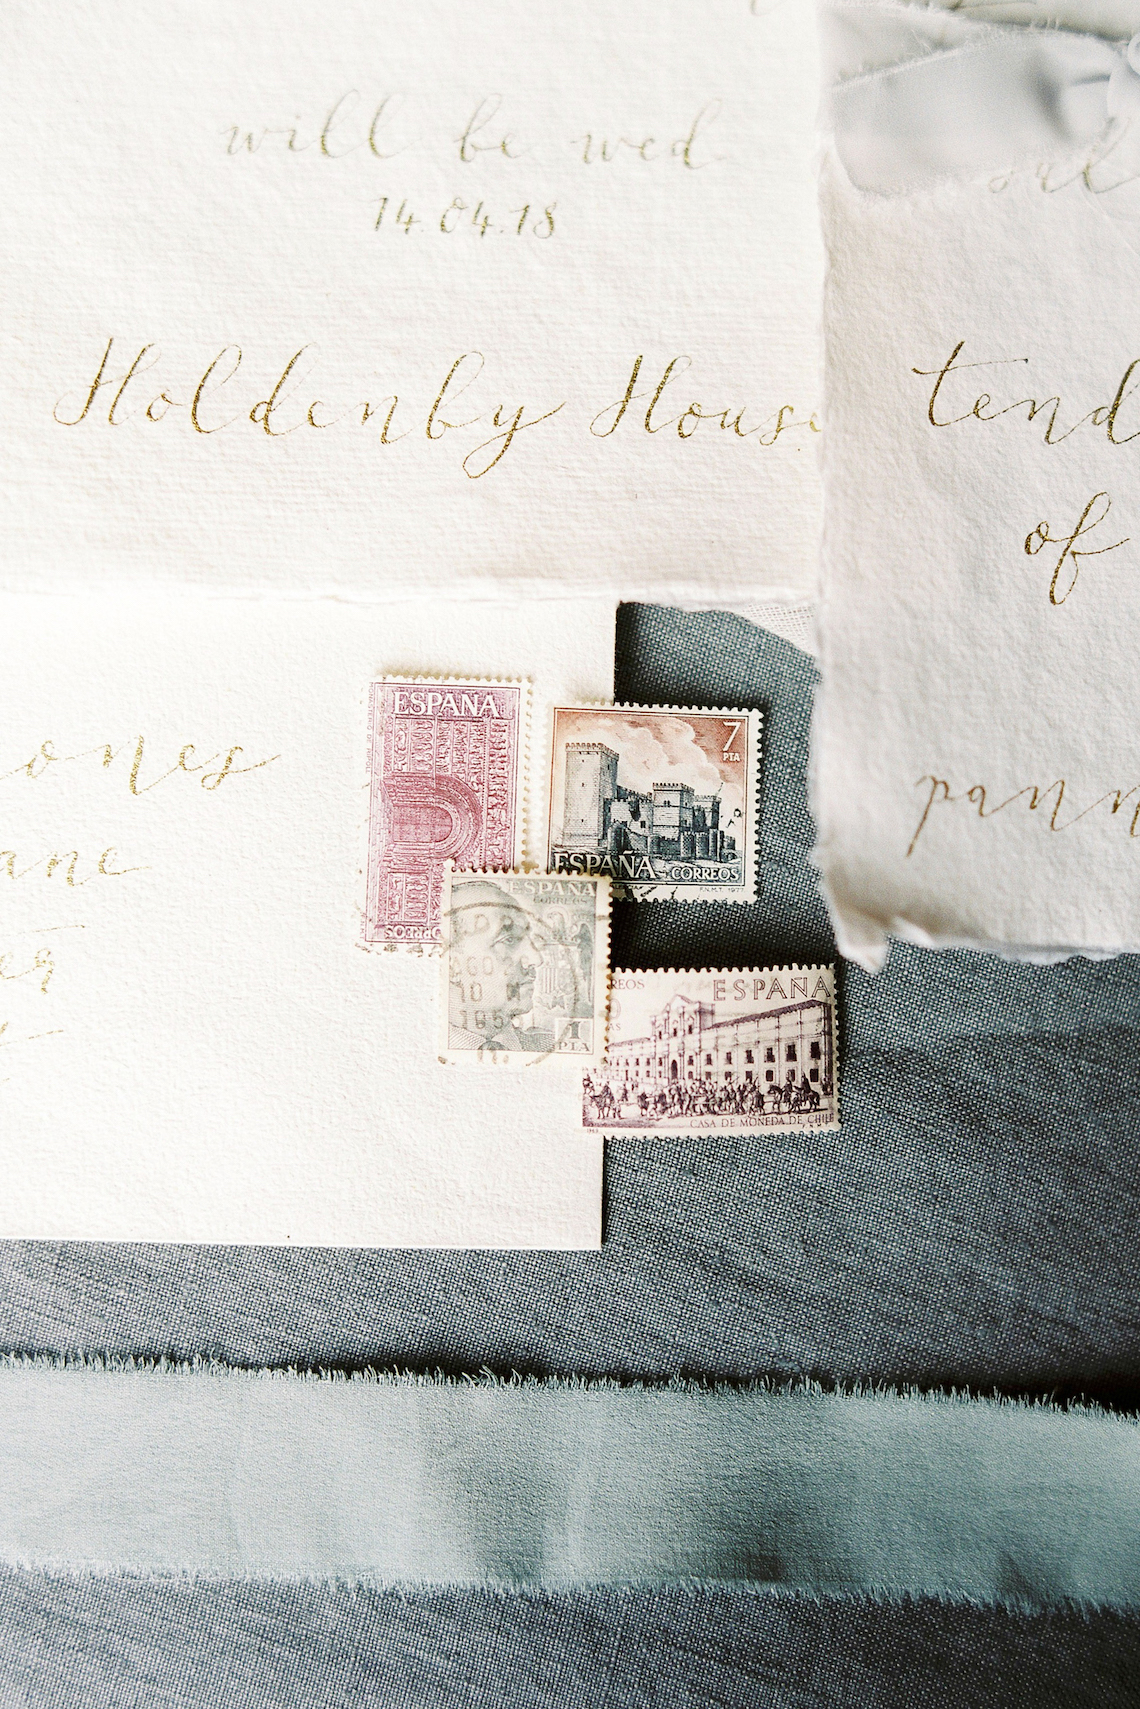 will be wed
14.04.18
Holdenby House
tend
of
pann
ones
ane
ESPAÑA
7
PTA
ESPAÑA
CORREOS
F.N.M.T. 1977
ESPAÑA
CORREOS
10
1 PTA
ESPAÑA
CASA DE MONEDA DE CHILE